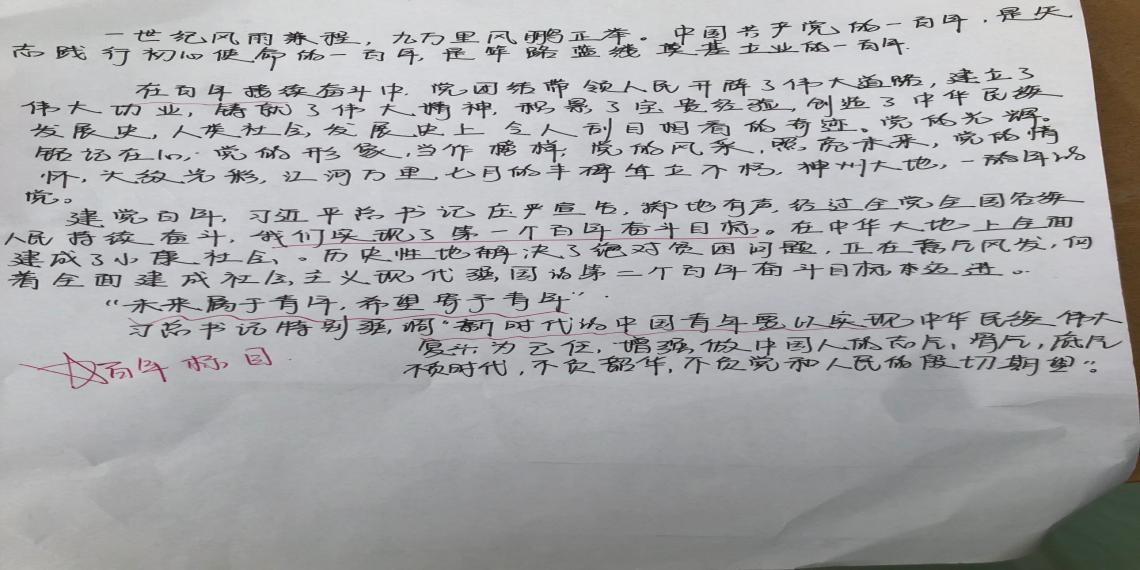 一世纪风雨兼程，九万里风鹏正举。中国共产党的一百年，是矢
志践行初心使命的一百年，是筚路蓝缕奠基立业的一百年.
在百年接续奋斗中，党团结带领人民开辟了伟大道路，建立了
伟大功业，铸就了伟大精神，积累了宝贵经验，创造了中华民族
发展史，人类社会发展史上令人刮目相看的奇迹。党的光辉。
铭记在心，党的形象，当作榜样，党的风采，照亮未来，党的情
怀，大放光彩，江河万里，七月的丰碑耸立不朽，神州大地，一
党。
建党百年，习近平总书记庄严宣告，掷地有声，经过全党全国各族
人民持续奋斗，我们实现了第一个百年奋斗目标。在中华大地上全面
建成了小康社会，。历史性地解决了绝对贫困问题，正在意气风发，向
着全面建成社会主义现代强国的第二个百年奋斗目标迈进。
“未来属于青年，希望寄予青年”
习总书记特别强调“新时代的中国青年要以实现中华民族伟大
复兴为己任，增强做中国人的志气，骨气，底气
不负时代，不负韶华，不负党和人民的殷切期望”。
☆百年标目